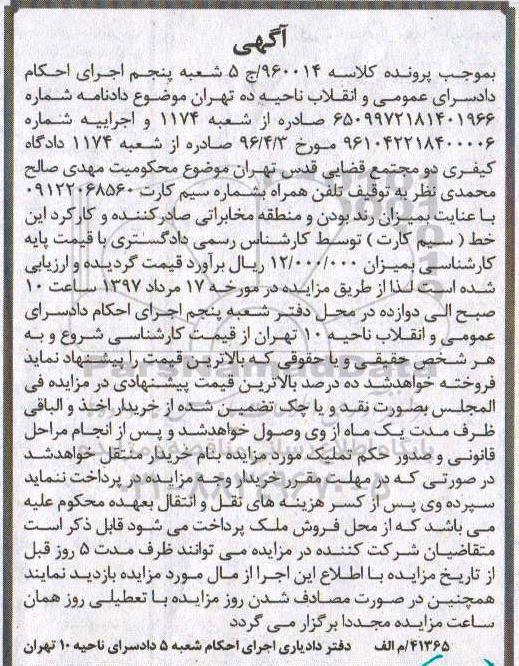 آگهی
بموجب پرونده کلاسه ۹۶۰۰۱۴/ج ۵ شعبه پنجم اجرای احکام
دادسرای عمومی و انقلاب ناحیه ده تهران موضوع دادنامه شماره
۶۵۰۹۹۷۲۱۸۱۴۰۱۹۶۶ صادره از شعبه ۱۱۷۴ و اجراییه شماره
۹۶۱۰۴۲۲۱۸۴۰۰۰۰۶ مورخ ۹۶/۴/۳ صادره از شعبه ۱۱۷۴ دادگاه
کیفری دو مجتمع قضایی قدس تهران موضوع محکومیت مهدی صالح
محمدی نظر به توقیف تلفن همراه بشماره سیم کارت ۰۹۱۲۲۰۶۸۵۶۰
با عنایت بمیزان رند بودن و منطقه مخابراتی صادرکننده و کارکرد این
خط ( سیم کارت ) توسط کارشناس رسمی دادگستری با قیمت پایه
کارشناسی بمیزان ۱۲/۰۰۰/۰۰۰ ریال برآورد قیمت گردیده و ارزیابی
شده است لذا از طریق مزایده در مورخه ۱۷ مرداد ۱۳۹۷ ساعت ۱۰
صبح الی دوازده در محل دفتر شعبه پنجم اجرای احکام دادسرای
عمومی و انقلاب ناحیه ۱۰ تهران از قیمت کارشناسی شروع و به
هر شخص حقیقی و یا حقوقی که بالاترین قیمت را پیشنهاد نماید
فروخته خواهدشد ده درصد بالاترین قیمت پیشنهادی در مزایده فی
المجلس بصورت نقد و یا چک تضمین شده از خریدار اخذ و الباقی
ظرف مدت یک ماه از وی وصول خواهدشد و پس از انجام مراحل
قانونی و صدور حکم تملیک مورد مزایده بنام خریدار منتقل خواهدشد
در صورتی که در مهلت مقرر خریدار وجه مزایده در پرداخت ننماید
سپرده وی پس از کسر هزینه های نقل و انتقال بعهده محکوم علیه
می باشد که از محل فروش ملک پرداخت می شود قابل ذکر است
متقاضیان شرکت کننده در مزایده می توانند ظرف مدت ۵ روز قبل
از تاریخ مزایده با اطلاع این اجرا از مال مورد مزایده بازدید نمایند
همچنین در صورت مصادف شدن روز مزایده با تعطیلی روز همان
ساعت مزایده مجددا برگزار می گردد
۴۱۳۶۵/م الف دفتر دادیاری اجرای احکام شعبه ۵ دادسرای ناحیه ۱۰ تهران
ParsNamadData